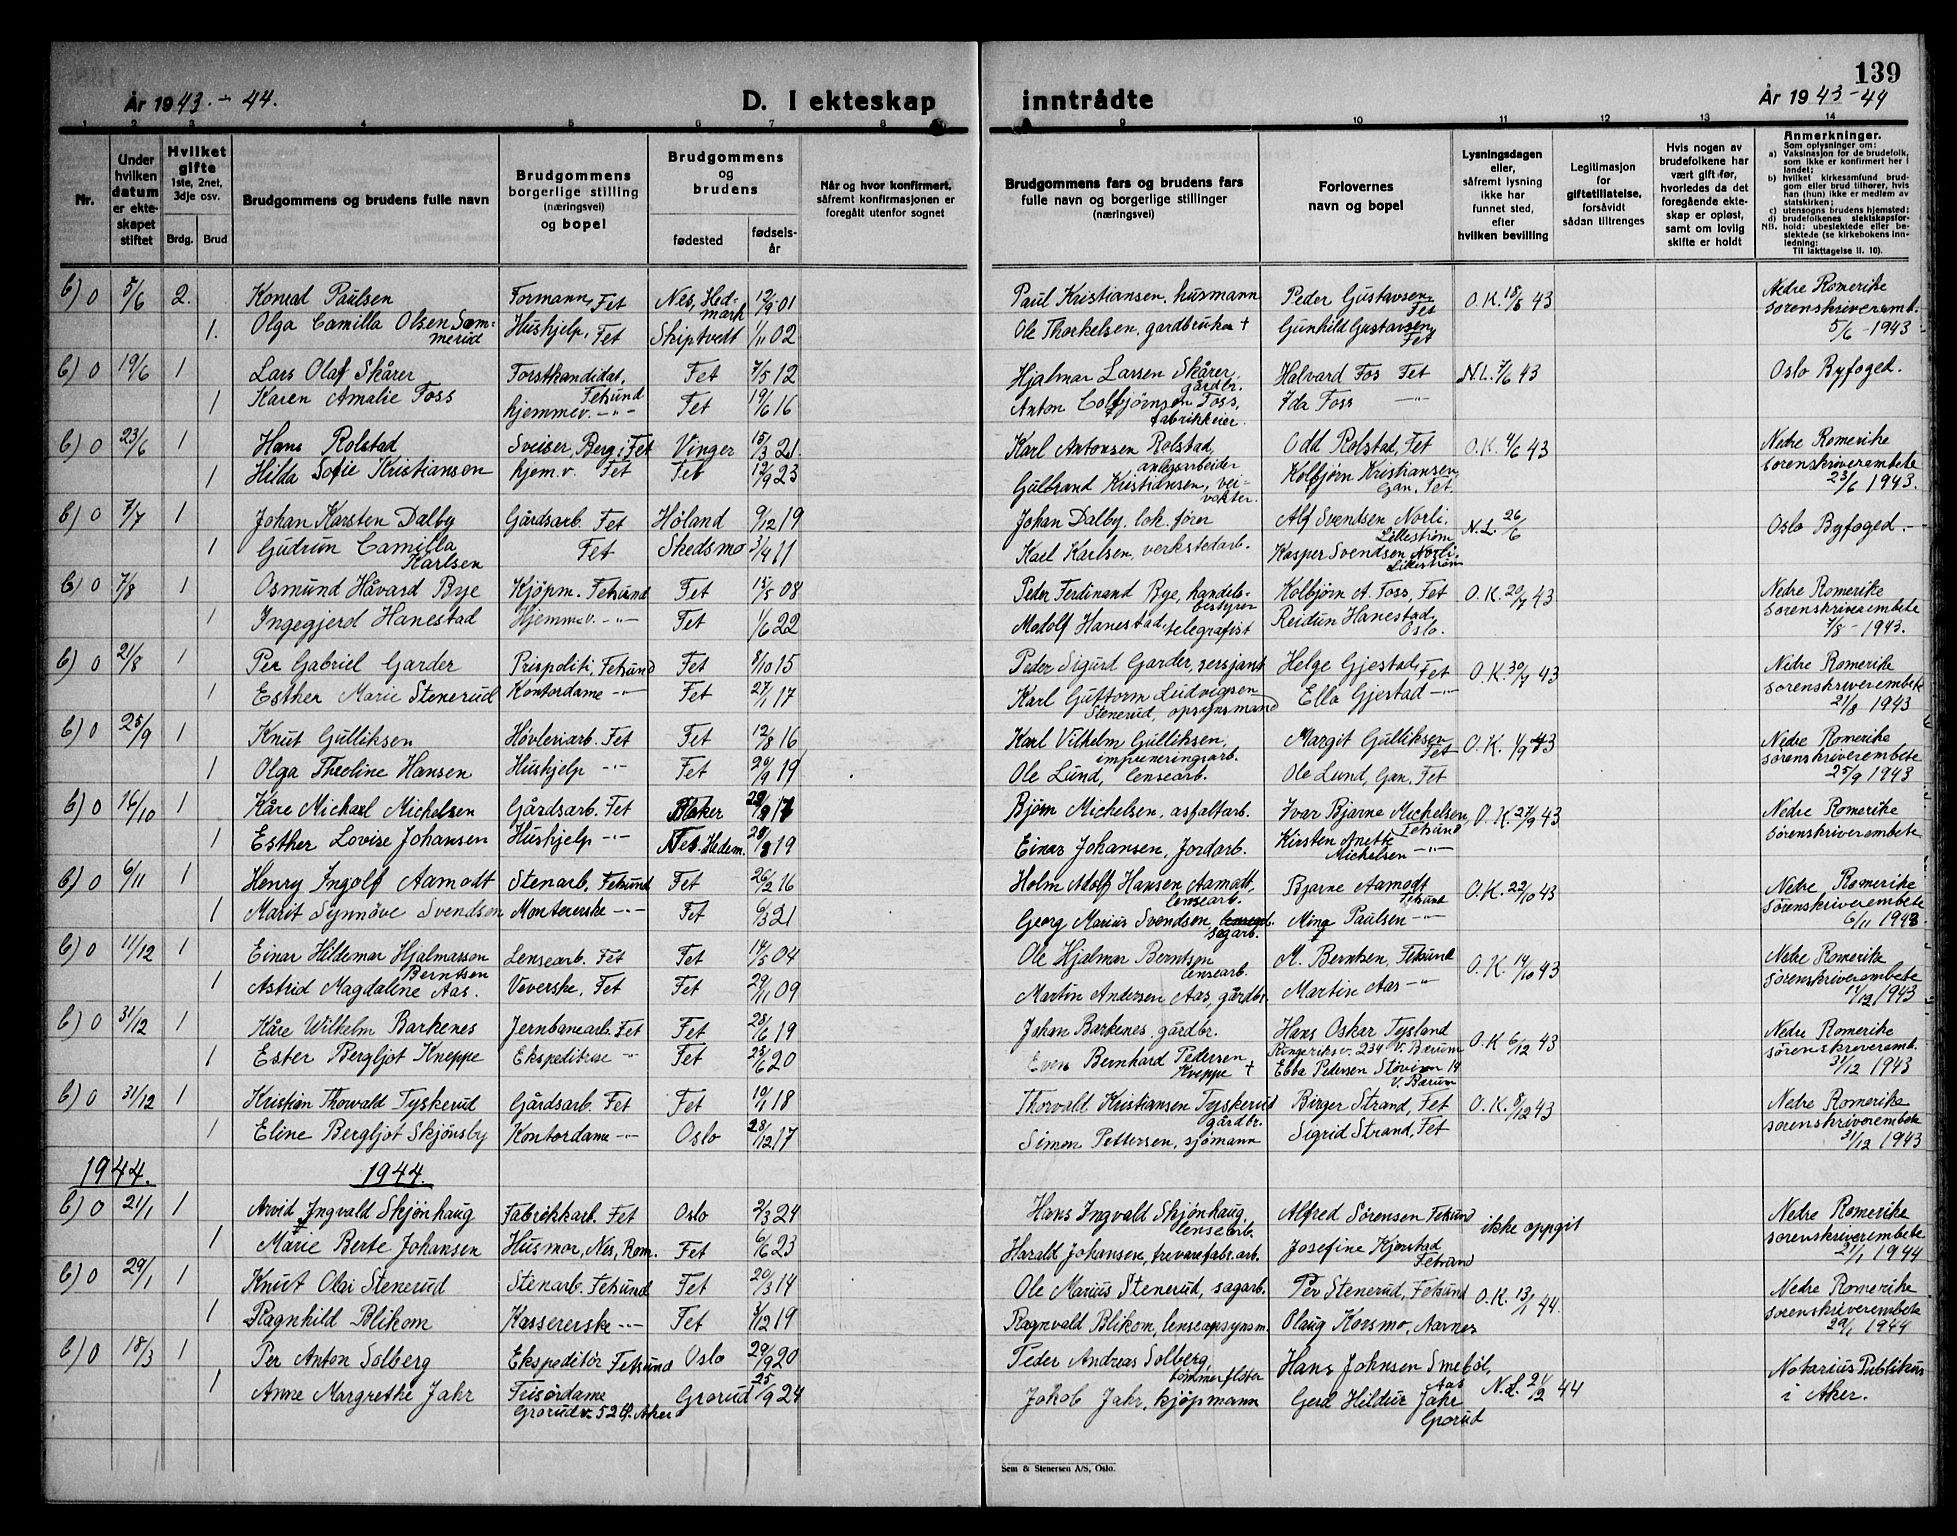 139
År 1943.-44.
D. I ekteskap
inntrådte
År 1943-44
1 2 3 4 5 6 7 8 9 10 11 12 13 14
Nr.
Under hvilken datum er ekteskapet stiftet
Hvilket gifte 1ste, 2net, 3dje osv.
Brdg. Brud
Brudgommens og brudens fulle navn
Brudgommens borgerlige stilling (næringsvei) og bopel
Brudgommens og brudens
fødested
fødselsår
Når og hvor konfirmert, såfremt konfirmasjonen er foregått utenfor sognet
Brudgommens fars og brudens fars fulle navn og borgerlige stillinger (næringsvei)
Forlovernes navn og bopel
Lysningsdagen eller, såfremt lysning ikke har funnet sted, efter hvilken bevilling
Legitimasjon for giftetillatelse, forsåvidt sådan tiltrenges
Hvis nogen av brudefolkene har vært gift før, hvorledes da det foregående ekteskap er opløst, samt om lovlig skifte er holdt
Anmerkninger.
Som oplysninger om:
a) Vaksinasjon for de brudefolk, som ikke er konfirmert her i landet;
b) hvilket kirkesamfund brudgom eller brud tilhører, hvis han (hun) ikke er medlem av statskirken;
c) utensogns brudens hjemsted;
d) brudefolkenes slektskapsforhold: ubeslektede eller beslektede (se kirkebokens innledning:
NB.
Til iakttagelse II. 10).
b) 0 5/6 2. Konrad Paulsen Formann, Fet Nes, Hedmark 12/9 01 Paul Kristiansen, husmann Peder Gustavsen, Fet O.K. 18/5 43 Nedre Romerike sorenskriveremb. 5/6-1943
1. Olga Camilla Olsen Sommerud Hushjelp, Fet Skiptvedt 1/11 02 Ole Thorkelsen, gardbruker + Gunhild Gustavsen, Fet
b) 0 19/6 1 Lars Olaf Skårer Forstkandidat, Fetsund Fet 7/5 12 Hjalmar Larsen Skårer, gårdbr. Halvard Fos Fet N.L. 7/6 43 Oslo Byfoged.
1 Karen Amalie Foss hjemmev. -"- Fet 19/6 16 Anton Colbjørnsen Foss, fabrikkeier. Ida Foss -"-
b) 0 23/6 1 Hans Rolstad Sveiser, Berg i Fet Vinger 15/3 21. Karl Antonsen Rolstad, anlegsarbeider Odd Rolstad, Fet O.K. 4/6 43 Nedre Romerike sorenskriverembete 23/6 1943.
1 Hilda Sofie Kristiansen hjem.v. Fet Fet 12/9 23 Gulbrand Kristiansen, veivokter. Kolbjørn Kristiansen, Gan, Fet.
b) 0 7/7 1 Johan Karsten Dalby Gårdsarb. Fet Høland 9/12 19 Johan Dalby, lok. fører Alf Svendsen Norli, Lillestrøm N.L. 26/6 Oslo Byfoged.-
1 Gudrun Camilla Karlsen Fet Skedsmo 3/4 11 Karl Karlsen, verkstedarb. Kasper Svendsen Norli, Lillestrøm
b) 0 7/8 1 Osmund Håvard Bye Kjøpm. Fetsund Fet 15/5 08 Peder Ferdinand Bye, handelsbestyrer Kolbjørn A. Foss, Fet O.K. 20/7 43 Nedre Romerike sorenskriverembete 7/8-1943.
1 Ingegjerd Hanestad Hjemmev. -"- Fet 1/6 22 Modolf Hanestad, telegrafist Reidun Hanestad, Oslo.
b) 0 21/8 1 Per Gabriel Garder Prispoliti, Fetsund Fet 8/10 15 Peder Sigurd Garder, sersjant Helge Gjestad, Fet O.K. 30/7 43 Nedre Romerike sorenskriverembete 21/8 1943
1 Esther Marie Stenerud Kontordame -"- Fet 27/1 17 Karl Guttorm Ludvigsen Stenerud, opsynsmand Ella Gjestad -"-
b) 0 25/9 1 Knut Gulliksen Høvleriarb. Fet Fet 12/8 16 Karl Vilhelm Gulliksen, impreneringsarb. Margit Gulliksen Fet O.K. 1/9 43 Nedre Romerike sørenskriverembete 25/9 1943
1 Olga Theoline Hansen Hushjelp -"- Fet 20/9 19 Ole Lund, lensearb. Ole Lund, Gan, Fet
b) 0 16/10 1 Kåre Michael Michelsen Gårdsarb. Fet Blaker Bjørn Michelsen, asfaltarb. Ivar Bjarne Michelsen Fetsund O.K. 27/9 43 Nedre Romerike sørenskriverembete
1 Esther Lovise Johansen Hushjelp -"- Nes. Hedem. 28/8 19 Einar Johansen, Jordarb. Kirsten Anette Michelsen -"-
b) 0 6/11 1 Henry Ingolf Aamodt Stenarb. Fetsund Fet 26/2 16 Holm Adolf Hansen Aamodt, lensearb. Bjarne Aamodt Fetsund O.K. 22/10 43 Nedre Romerike sørenskriverembete 6/11 1943
1 Marit Synnöve Svendsen Montererske -"- Fet 6/3 21 Georg Marius Svendsen, sagarb. Mina Paulsen -"-
b) 0 11/12 1 Einar Hildemar Hjalmarson Berntsen Lensearb. Fet Fet 14/5 04 Ole Hjalmar Berntsen lensearb. M. Berntsen, Fetsund O.K. 14/10 43 Nedre Romerike sørenskriverembete 11/12 1943
1 Astrid Magdalene Aas. Veverske, Fet Fet 29/11 09 Martin Andersen Aas, gårdbr. Martin Aas -"-
b) 0 31/12 1 Kåre Wilhelm Barkenes Jernbanearb. Fet Fet 28/6 19 Johan Barkenes, gårdbr. Hans Oskar Tysland Ringeriksv. 234 V. Bærum O.K 6/12 43 Nedre Romerike sørenskriveremb. 31/12 1943
1 Ester Bergljot Kneppe Ekspeditrise -"- Fet 25/6 20 Even Bernhard Pedersen Kneppe + Ebba Pedersen Støvien 14 V. Bærum
b) 0 31/12 1 Kristian Thorvald Tyskerud Gårdsarb. Fet Fet 10/1 18 Thorvald Kristiansen Tyskerud gårdbr. Birger Strand, Fet O.K. 8/12 43 Nedre Romerike sorenskriverembete 31/12 1943
1 Eline Bergljot Skjønsby Kontordame -"- Oslo 28/12 17 Simon Pettersen, sjømann Sigrid Strand, Fet
1944. 1944.
b) 0 21/1 1 Arvid Ingvald Skjønhaug Fabrikkarb. Fet Oslo 2/3 24 Hans Ingvald Skjønhaug, lensearb. Alfred Sørensen Fetsund ikke oppgit Nedre Romerike sorenskriverembete 21/1 1944
1 Marie Berte Johansen Husmor, Nes, Rom. Fet 6/6 23 Harald Johansen, trevarefabr.arb. Josefine Kjønstad Fetsund
b) 0 29/1 1 Knut Olai Stenerud Stenarb. Fetsund Fet 20/3 14 Ole Marius Stenerud, sagarb. Per Stenerud, Fetsund O.K. 13/1 44. Nedre Romerike sorenskriverembete 29/1 1944
1 Ragnhild Blikom Kassererske -"- Fet 3/12 19 Ragnvald Blikom, lenseopsynsm. Olaug Korsmo, Aarnes
b) 0 18/3 1 Per Anton Solberg Ekspeditör Fetsund Oslo 29/9 20 Peder Andreas Solberg, tømmerfløter Hans Johnsen Smebøl, Aas N.L. 21/2 44 Notarius Publikus i Aker.
1 Anne Margrethe Jahr Frisørdame Grorudv. 52 Ø. Aker Grorud 25/9 24 Jakob Jahr, kjøpmann Gerd Hildur Jahr Grorud
Sem & Stenersen A/S, Oslo.